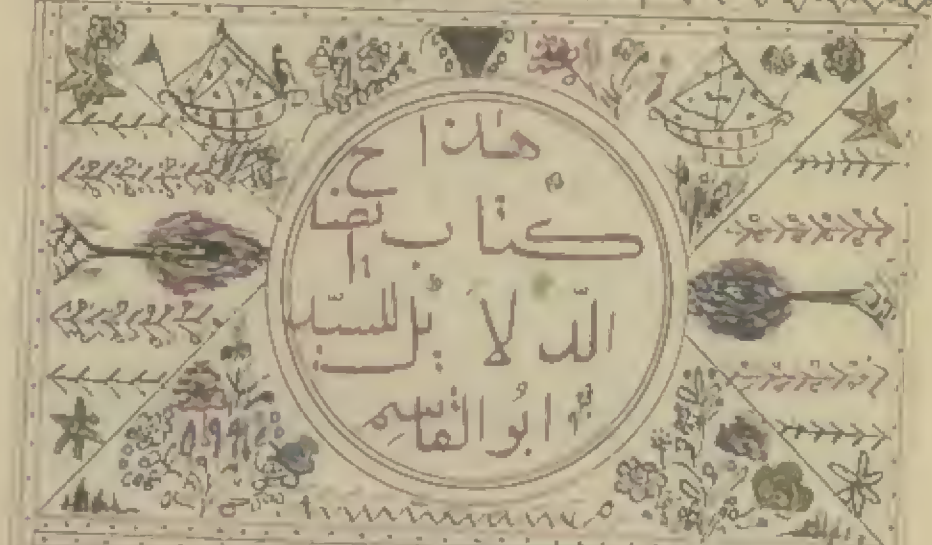 هذا
كتاب ايضاح
الدلايل للسيد
ابو القاسم